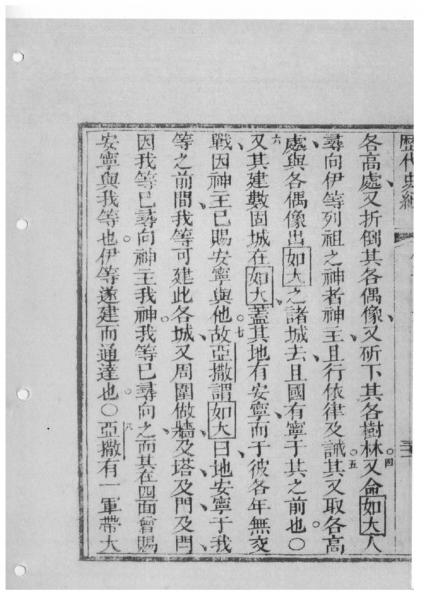 歷代史經
各高處又折倒其各偶像又斫下其各樹林又命如大人
尋向伊等列祖之神者神主且行依律及誡其又取各高
處與各偶像出如大之諸城去且國有寧于其之前也○
又其建數固城在如大蓋其地有安寧而于彼各年無交
戰因神主已賜安寧與他故亞撒謂如大曰地安寧于我
等之前間我等可建此各城又周圍做牆及塔及門及閂
因我等已尋向神主我神我等已尋向之而其在四面曾賜
安寧與我等也伊等遂建而通達也○亞撒有一軍帶大
四
五
六
七
八